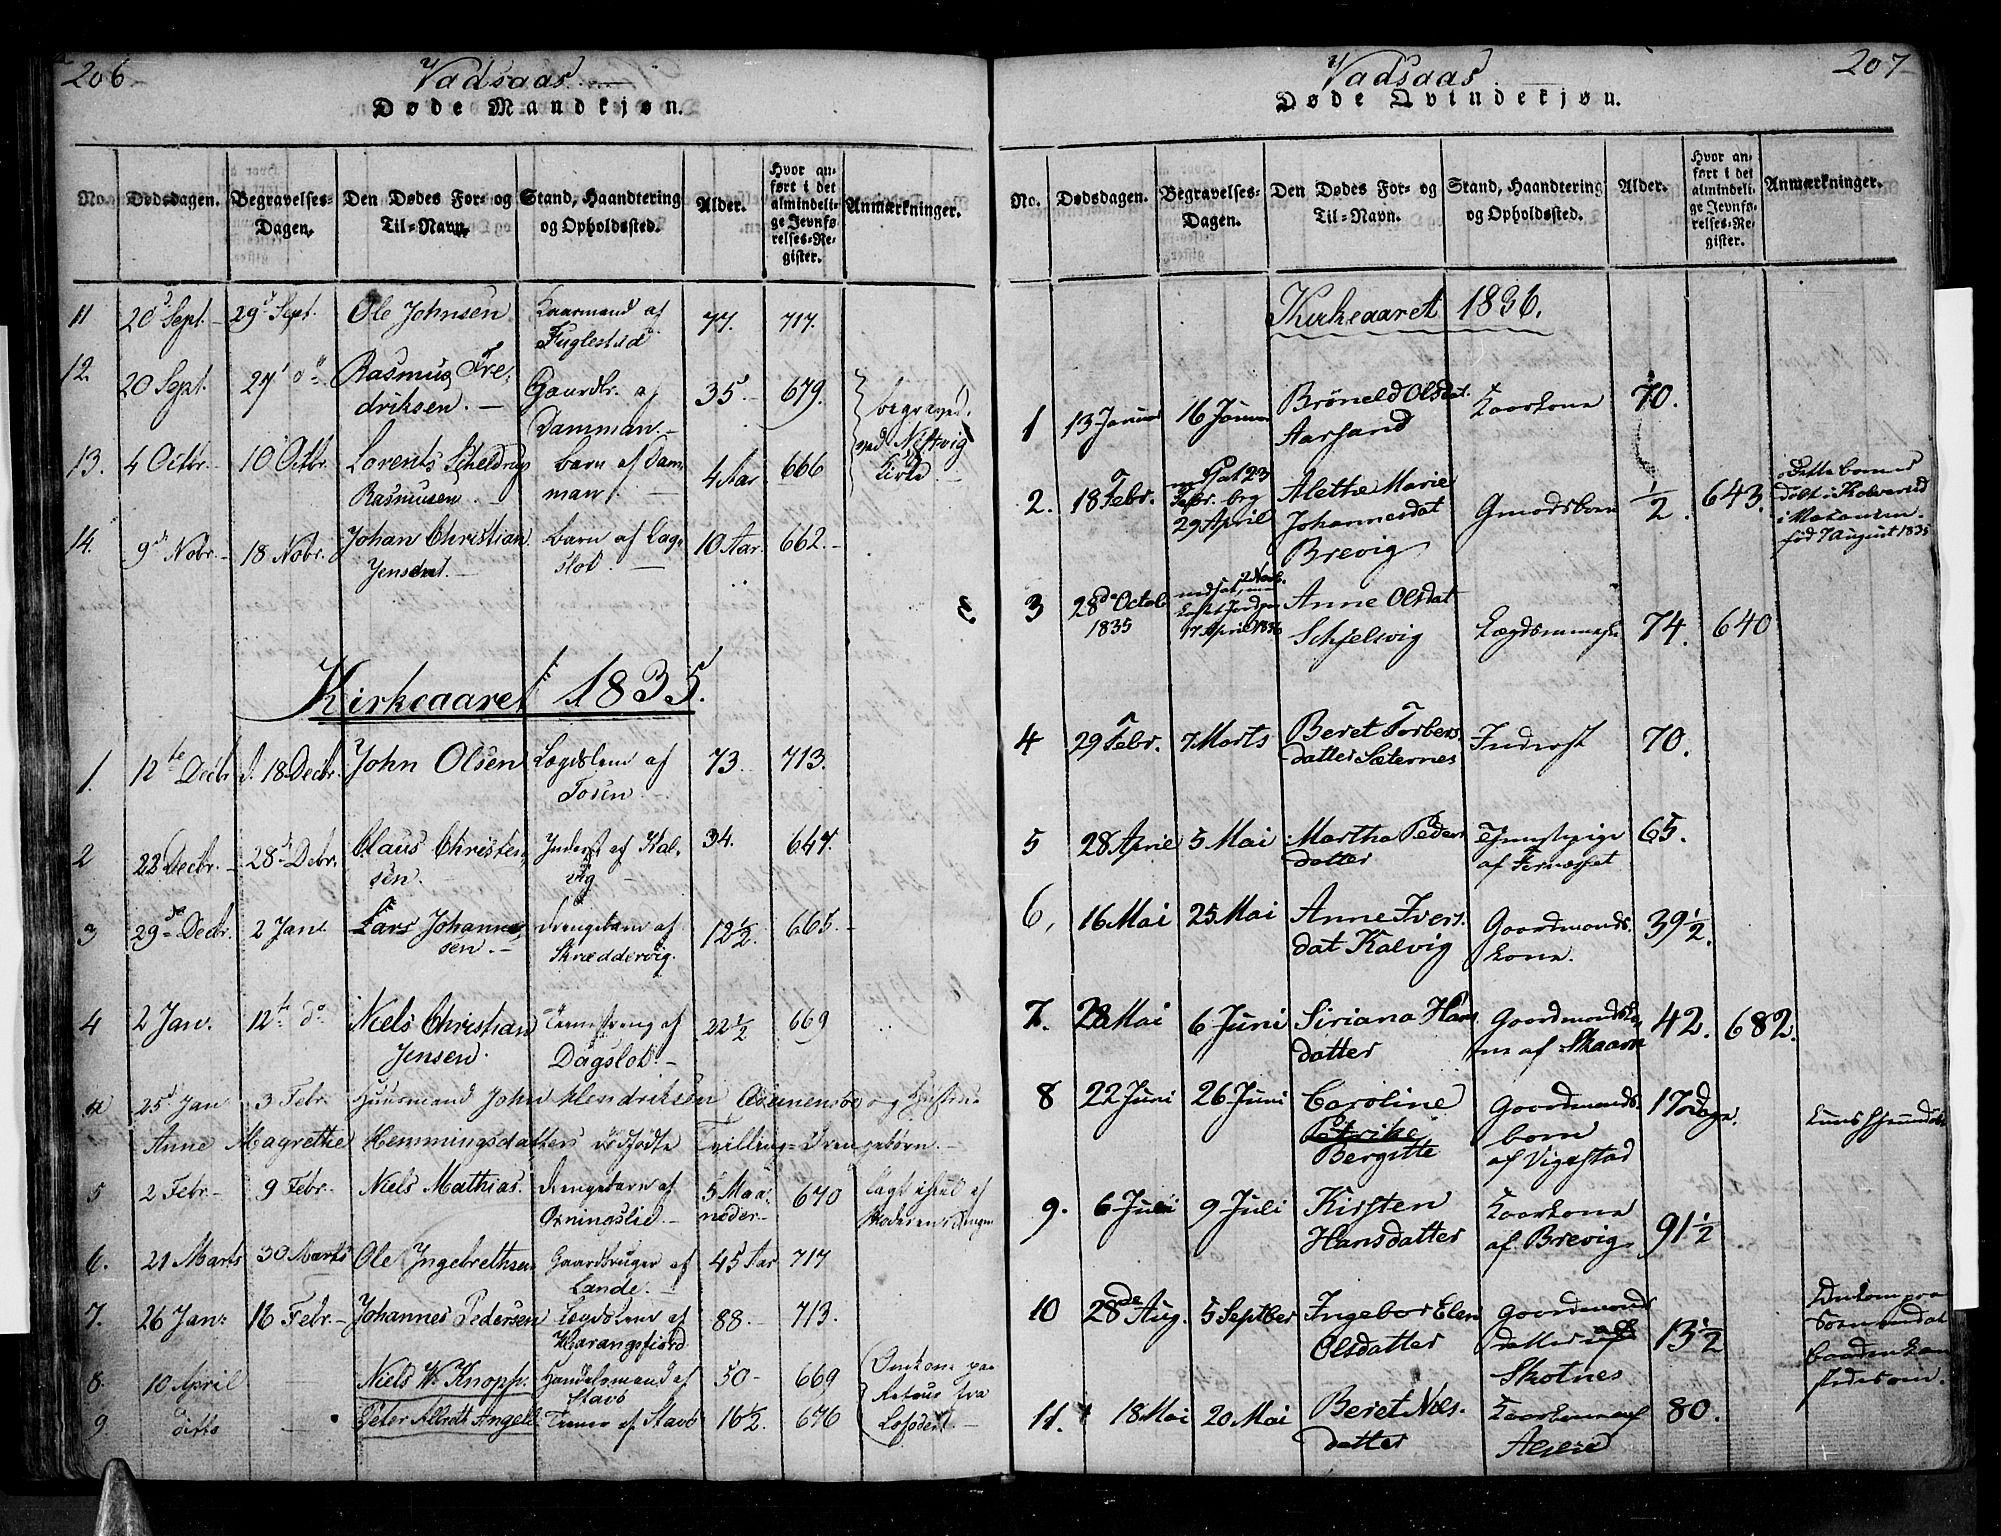 206
Vadsaas
Døde Mandkjøn.
No. Dødsdagen. Begravelses-Dagen. Den Dødes For- og Til-Navn. Stand, Haandtering og Opholdssted. Alder. Hvor anført i det almindelige Jevnførelses-Register. Anmærkninger.
11 20 Sept. 29 Sept. Ole Johnsen Kaarmand af Fuglestad 77. 717.
12. 20 Sept. 27 do Rasmus Fredriksen. Gaardbr. af Damman. 35. 679. begraved ved Kirke
13. 4 Octbr. 10 Octbr. Lorents Scheldrup Rasmusen barn af Damman 4 Aar 666
14. 9 Nobr. 18 Nobr. Johan Christian Jensen barn af 10 Aar 662.
Kirkeaaret 1835.
1. 12te Decbr 18 Decbr. John Olsen Lægdslem af Tosen 73 713.
2 22 Decbr. 28 Debr. Claus Christensen. Inderst af Kalvig 34. 647.
3 29 Decbr. 2 Jan. Lars Johannessen. drengebarn af Skræddervig 12½ 665.
4 2 Jan. 12te do Niels Christian Jensen. af Dagslob. 22½ 669
a 25 Jan 3 Febr. Huusmand John Hendriksen og Hustrue
Anne Magrethe Hemmingsdatters Tvilling-Drengebørn.
5 2 Febr. 9 Febr. Niels Mathias. drengebarn af Ørningslid. 5 Maaneder 670 lagt ihiel af Moderen i Sengen
6. 21 Marts 30 Marts Ole Ingebrethsen Gaardbruger af Lande. 45 Aar 717
7. 26 Jan. 16 Febr. Johannes Pedersen Lægdslem af Harangsfiord 88. 713.
8. 10 April Niels W. Knopp. Handelsmand af Stavø 50 669 Omkom paa Retour fra Lofoden
9 ditto Peter Albrdt Angell Tiener af Stavø 16½ 676
207
Vadsaas
Døde Qvindekjøn.
No. Dødsdagen. Begravelses-Dagen. Den Dødes For- og Til-Navn. Stand, Haandtering og Opholdssted. Alder. Hvor anført i det almindelige Jevnførelses-Register. Anmærkninger.
Kirkeaaret 1836.
1 13 Januar 16 Januar Brøneld Olsdat. Aarsand Kaarkone 70.
2. 18 Febr. 23 Febr. beg 29 April Alethe Marie Johannesdat Brevig Gmdsbarn ½ 643. Dette barn er døbt i Kolvereid født 7 August 1835
3 28de Octob 1835 nedsat 2 Novb. kast Jord paa 17 April 1836 Anne Olsdat Schjelsvig 74. 640
4 29 Febr. 7 Marts Beret Torbersdatter Sæternes Inderst 70.
5 28 April 5 Mai Martha Pedersdatter Tjenstepige af Fornæsset 65.
6. 16 Mai 25 Mai Anne Iversdat Kalvig Gaardmandskone. 39½
7. 28 Mai 6 Juni Siriana Hansdatter Gaardmandskone af Skaarn 42. 682.
8 22 Juni 26 Juni Caroline Petrike Bergitte Gaardmandsbarn af Vigestad 17 dage
9. 6 Juli 9 Juli Kirsten Hansdatter Kaarkone af Brevig 91½
10 28de Aug. 5 Septber Ingebor Elen Olsdatter Gaardmandsdatter af Skotnes 13½
11. 18 Mai 20 Mai Beret Nilsdatter Kaarkone af 80.